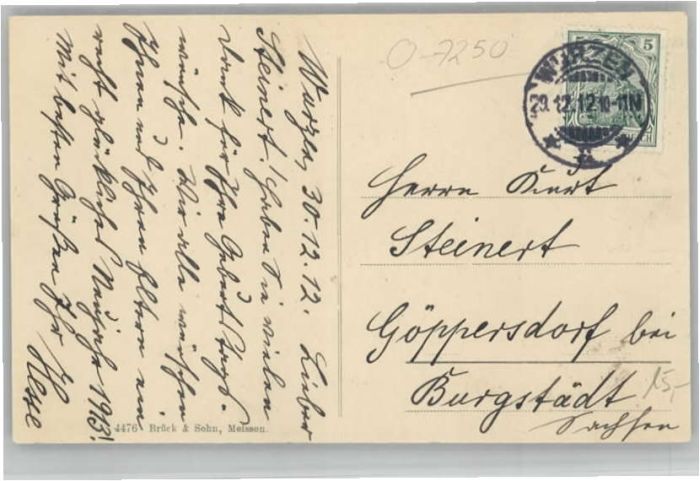 Wurzen, 30.12.12. Lieber
Steinert! Haben Sie vielen
Dank für Ihre Geburtstags-
wünsche. Wir alle wünschen
Ihnen und Ihren Eltern ein
recht glückliches Neujahr 1913!
Mit besten Grüßen Ihr Hesse
4476 Brück & Sohn, Meissen.
O-7250
5
WURZEN
29.12.12.10-11N
Herrn Kurt
Steinert
Göppersdorf bei
Burgstädt
Sachsen
15,-